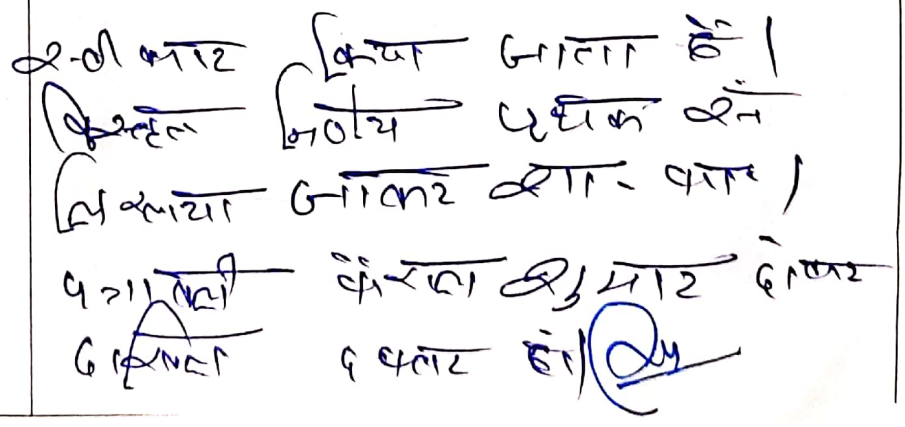 स्वीकार किया जाता है।
विस्तृत निर्णय पृथक से
लिखाया जाकर शा. पत्र।
पत्रावली फैसला शुमार होकर
दाखिल दफ्तर हो।